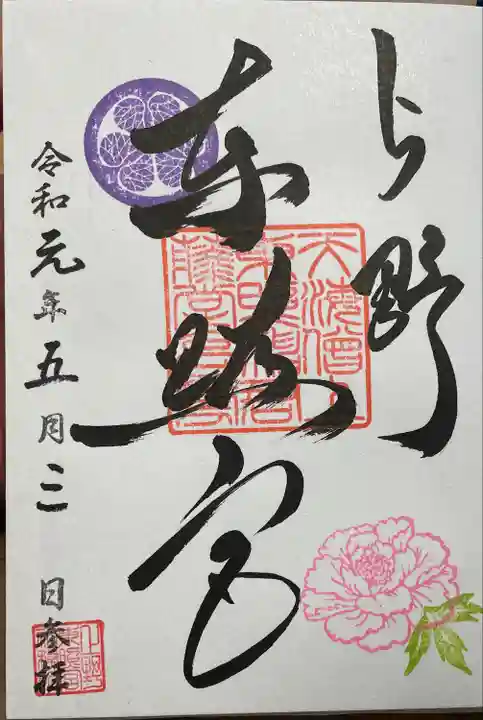 上野
東照宮
令和元年五月三日参拝